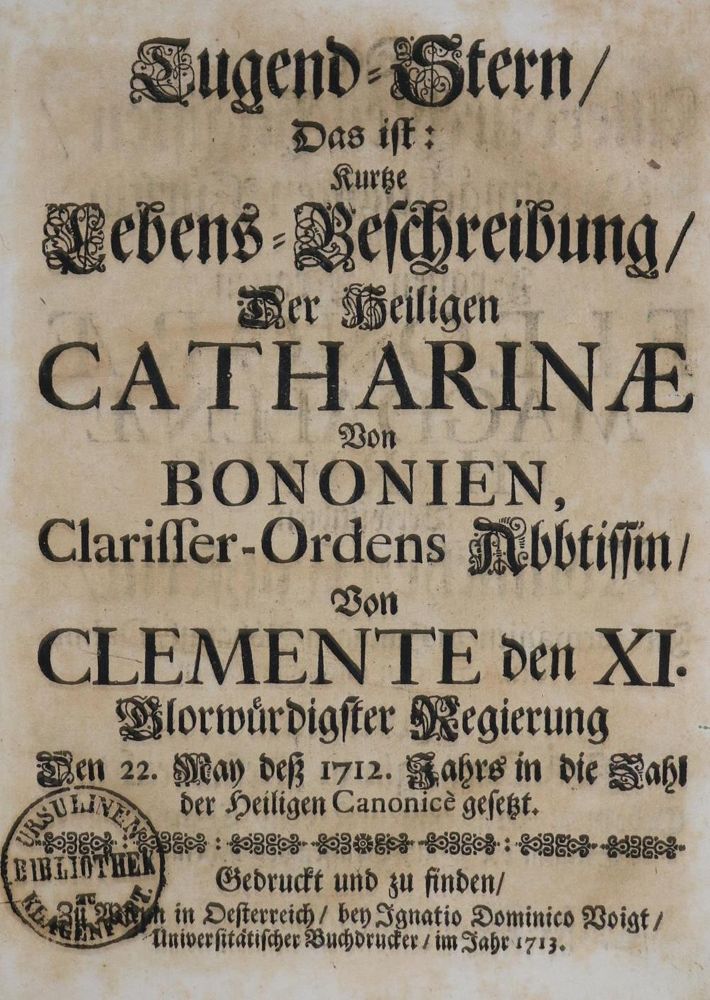 Tugend-Stern/
Das ist:
Kurtze
Lebens-Beschreibung/
Der Heiligen
CATHARINÆ
Von
BONONIEN,
Clarisser-Ordens Abbtissin/
Von
CLEMENTE den XI.
Glorwürdigster Regierung
Den 22. May deß 1712. Jahrs in die Zahl
der Heiligen Canonicè gesetzt.
Gedruckt und zu finden/
Zu Wienn in Oesterreich/ bey Ignatio Dominico Voigt/
Universitätischer Buchdrucker/ im Jahr 1713.
URSULINEN
BIBLIOTHEK
ZU
KLAGENFURT.